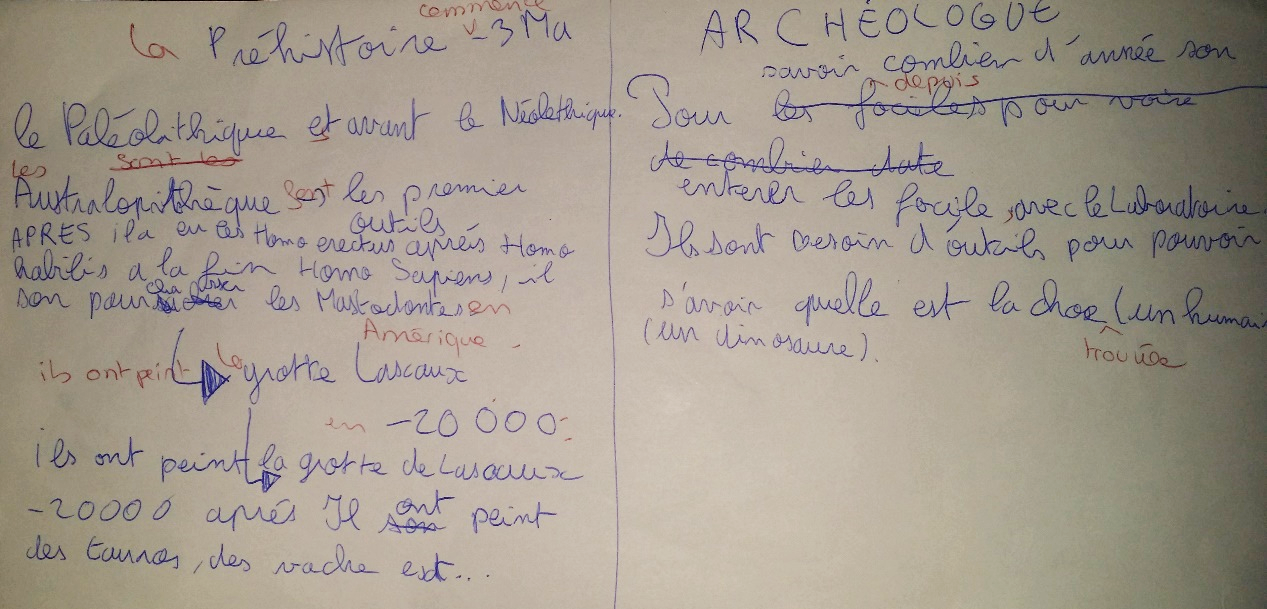 commence
la Préhistoire -3 Ma
le Paléolithique est avant le Néolethique.
les sont les
Australopithèque sont les premier
outils
APRES il a eu les Homo erectus aprés Homo
habilis a la fin Homo Sapiens, il
chasser
son pour les Mastodontes en
Amérique.
ils ont peint la grotte Lascaux
en -20 000.
ils ont peint la grotte de Lascaux
-20000 aprés Il ont peint
des tauros, des vache ext...
ARCHÉOLOGUE
savoir combien d'année son
depuis
Pour les faciles pour voire
de combrien date
enterer les facile, avec le Laboratoire.
Ils sont besoin d'outails pour pouvoir
s'avoir quelle est la chose (un humain
(un dinosaure).
trouvée